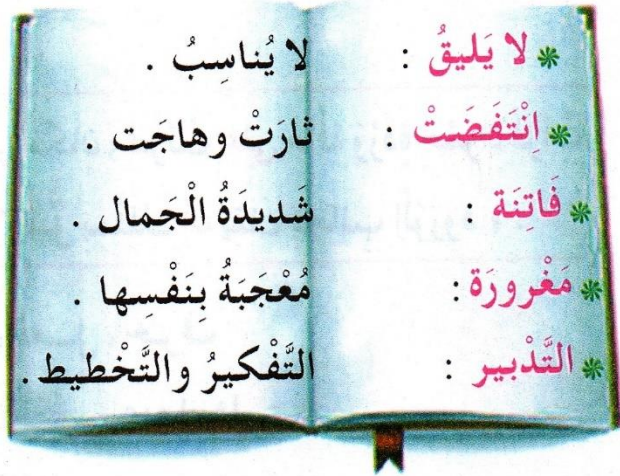 * لا يَليقُ : لا يُناسِبُ .
* اِنْتَفَضَتْ : ثارَتْ وهاجَت .
* فَاتِنَة : شَديدَةُ الْجَمال .
* مَغْرورَة : مُعْجَبَةٌ بِنَفْسِها .
* التَّدْبير : التَّفْكيرُ والتَّخْطيط .